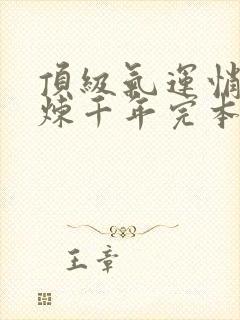 頂級氣運悄
煉千年完本
王章